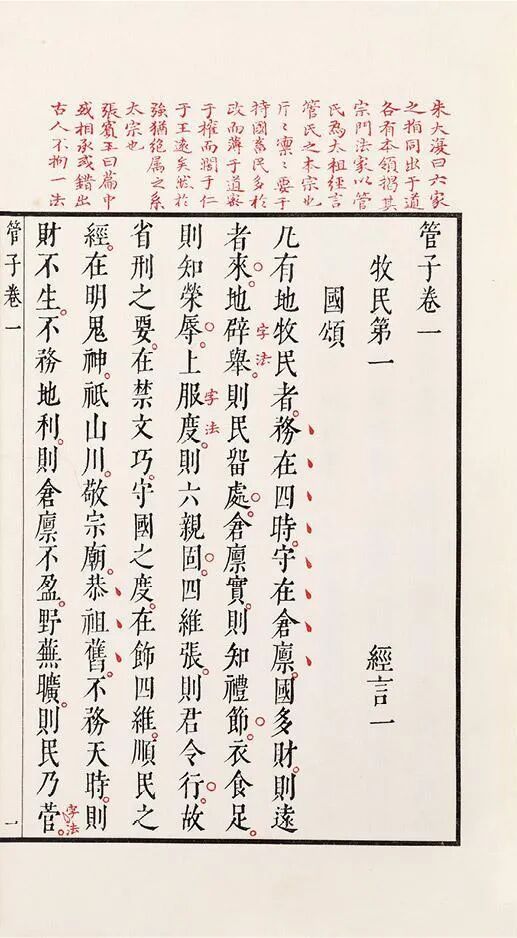 朱大復曰六家
之指同出于道
各有本領獨其
宗門法家以管
氏為太祖經言
管氏之本宗也
斤〻稟〻要于
持國畜民多於
政而薄于道密
于權而闊于仁
于王遠矣然於
強猶絶属之系
太宗也
張賓王曰篇中
或相承或錯出
古人不拘一法
管子卷一
牧民第一 經言一
國頌
凢有地牧民者務在四時守在倉廩國多財則遠
者來地辟舉則民畱處倉廩實則知禮節衣食足
字法
則知榮辱上服度則六親固四維張則君令行故
字法
省刑之要在禁文巧守國之度在飾四維順民之
經在明鬼神祇山川敬宗廟恭祖舊不務天時則
財不生不務地利則倉廩不盈野蕪曠則民乃菅
字法
管子卷一 一